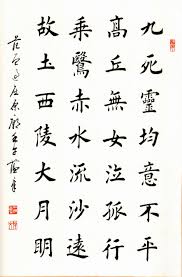 九死靈均意不平
高丘無女泣孤行
乘鷖赤水流沙遠
故土西陵大月明